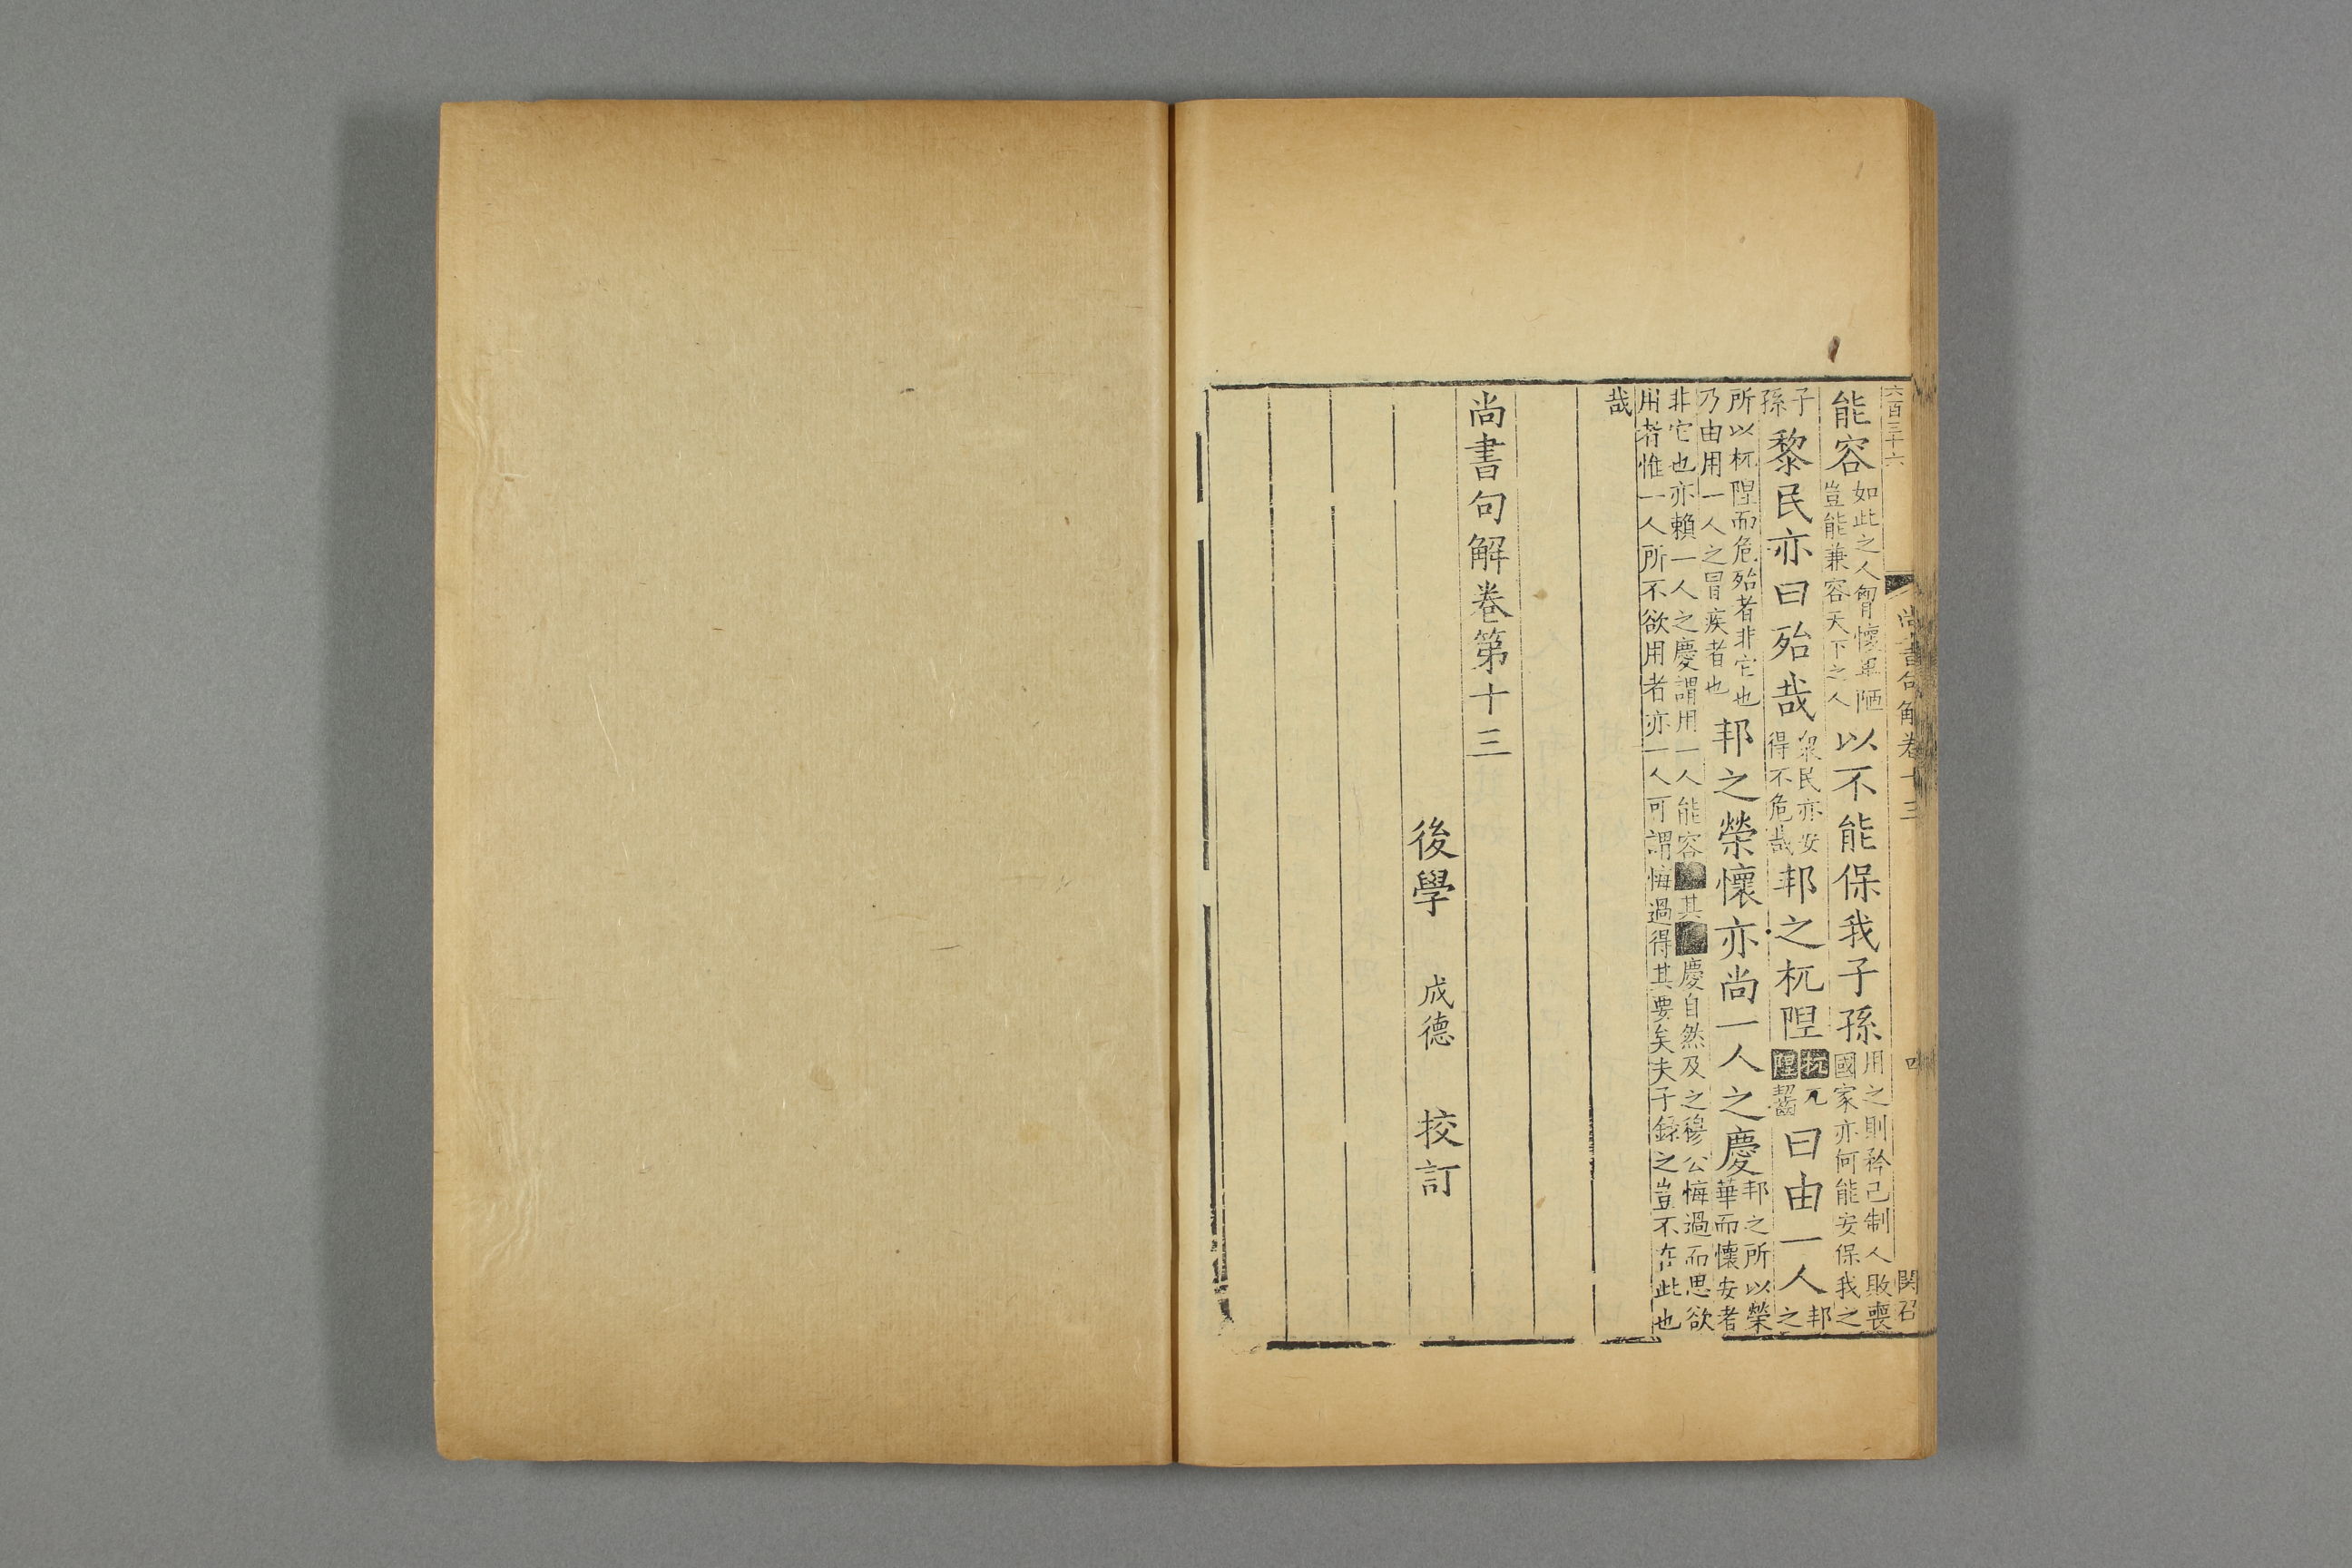 六百三十六
尚書句解卷十三
関召
能容如此之人胷懷卑陋豈能兼容天下之人以不能保我子孫用之則矜己制人敗喪國家亦何能安保我之
子孫黎民亦曰殆哉衆民亦安得不危哉邦之杌隉杌兀隉齧曰由一人邦之
所以杌隉而危殆者非它也乃由用一人之冒疾者也邦之榮懷亦尚一人之慶邦之所以榮華而懷安者
非它也亦賴一人之慶謂用一人能容其慶自然及之穆公悔過而思欲用者惟一人所不欲用者亦一人可謂悔過得其要矣夫子錄之豈不在此也
哉
尚書句解卷第十三
後學 成德 挍訂